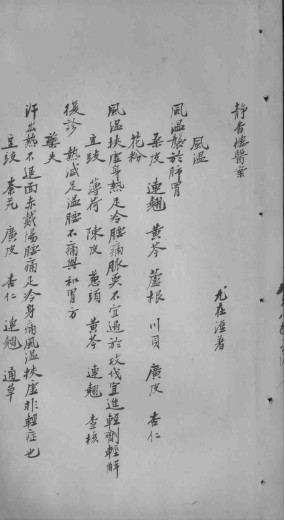 靜香樓醫案
尤在涇著
風溫
風溫鬱於肺胃
桑皮 連翹 黃芩 蘆根 川貝 廣皮 杏仁
花粉
風溫挾虛身熱足冷腹痛脈矢不宜過於攻伐宜進輕劑輕解
豆豉 薄荷 陳皮 蔥頭 黃芩 連翹 查核
復診 熱減足溫腹不痛與和胃方
藥失
汗出熱不退面赤戴陽腹痛足冷身痛風溫挾虛非輕症也
豆豉 秦艽 廣皮 杏仁 連翹 通草